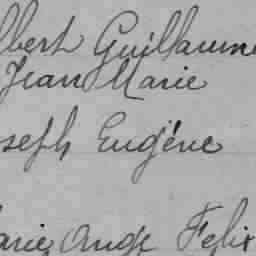 lbert Guillaume
Jean Marie
oseph Eugène
arie Ange Felix